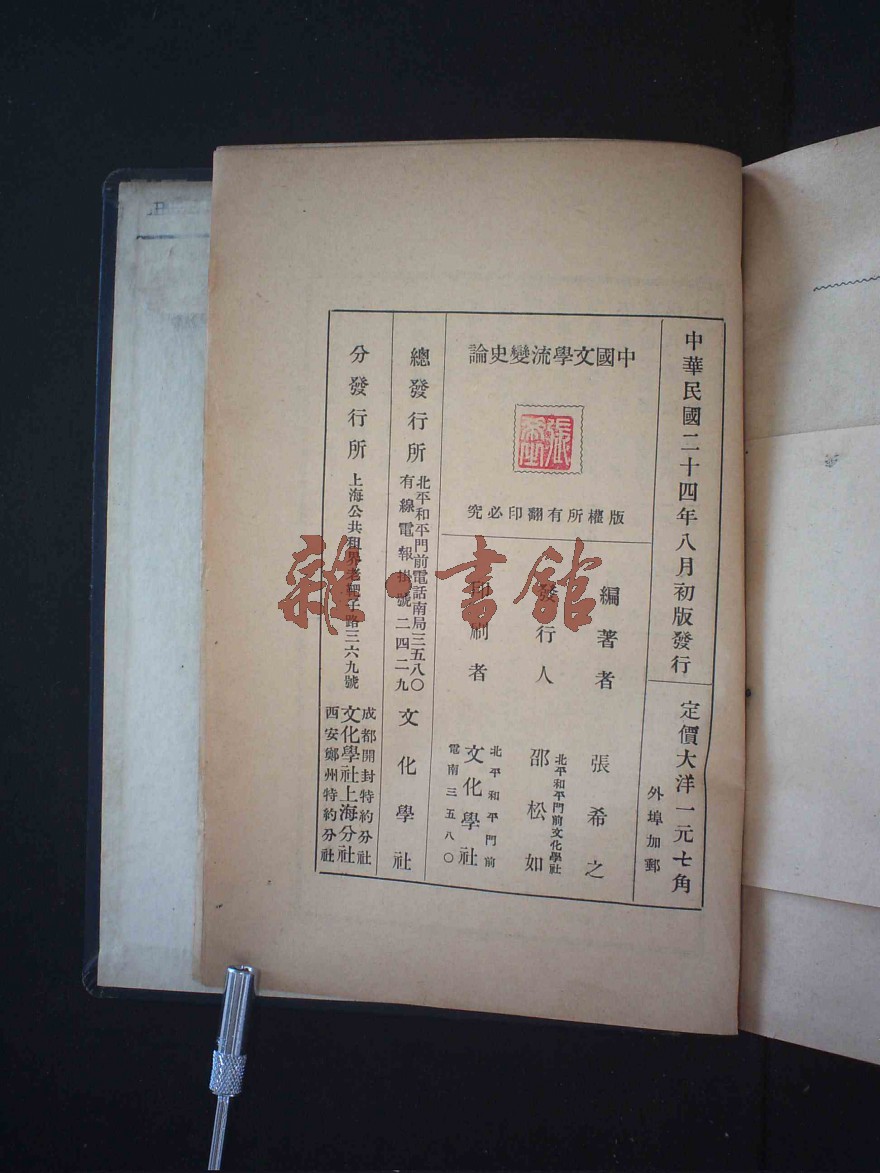 中華民國二十四年八月初版發行
定價大洋一元七角
外埠加郵
中國文學流變史論
版權所有翻印必究
編著者 張希之
發行人 北平和平門前文化學社 邵松如
印刷者 北平和平門前 文化學社 電南三五八〇
總發行所 北平和平門前電話南局三五八〇 有線電報掛號二四二九 文化學社
分發行所 上海公共租界老靶子路三六九號 成都開封特約分社 文化學社上海分社 西安鄭州特約分社
雜·書館